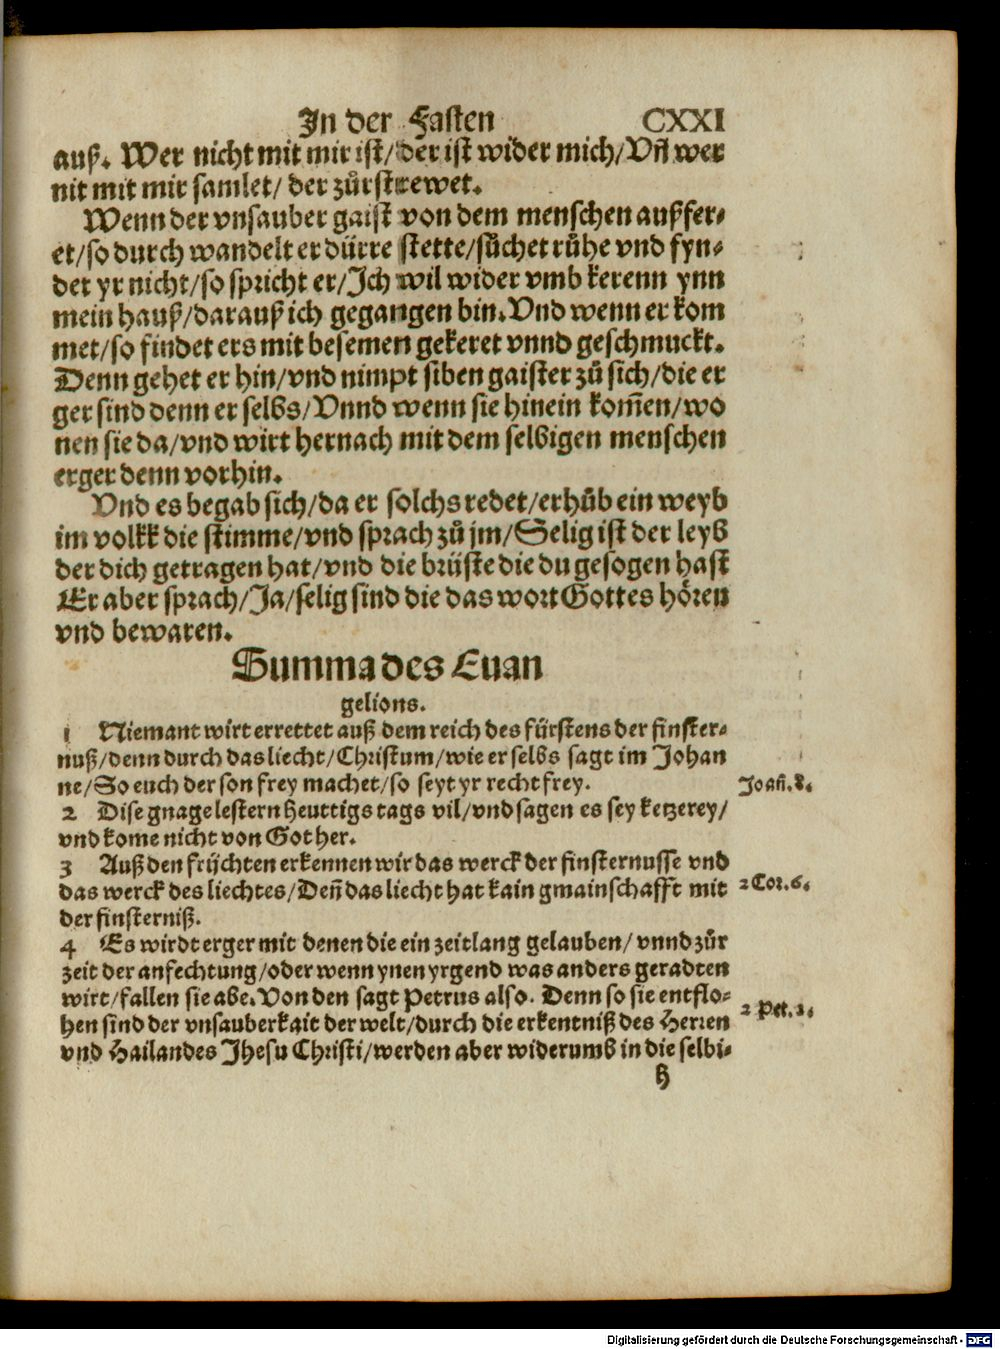 In der Fasten CXXI
auß. Wer nicht mit mir ist/ der ist wider mich/ Vñ wer
nit mit mir samlet/ der zůrstrewet.
Wenn der vnsauber gaist von dem menschen außfer⸗
et/ so durch wandelt er dürre stette/ sůchet růhe vnd fyn⸗
det yr nicht/ so spricht er/ Ich wil wider vmb kerenn ynn
mein hauß/ darauß ich gegangen bin. Vnd wenn er kom
met/ so findet ers mit besemen gekeret vnnd geschmuckt.
Denn gehet er hin/ vnd nimpt siben gaister zů sich/ die er
ger sind denn er selbs/ Vnnd wenn sie hinein kom̄en/ wo
nen sie da/ vnd wirt hernach mit dem selbigen menschen
erger denn vorhin.
Vnd es begab sich/ da er solchs redet/ erhůb ein weyb
im volkk die stimme/ vnd sprach zů jm/ Selig ist der leyb
der dich getragen hat/ vnd die brüste die du gesogen hast
Er aber sprach/ Ja/ selig sind die das wort Gottes hören
vnd bewaren.
Summa des Euan
gelions.
1 Niemant wirt errettet auß dem reich des fürstens der finster⸗
nuß/ denn durch das liecht/ Christum/ wie er selbs sagt im Johan
ne/ So euch der son frey machet/ so seyt yr recht frey.
Joañ. 8.
2 Dise gnage lestern heuttigs tags vil/ vnd sagen es sey ketzerey/
vnd kome nicht von Got her.
3 Auß den frijchten erkennen wir das werck der finsternusse vnd
das werck des liechtes/ Deñ das liecht hat kain gmainschafft mit
2 Cor. 6.
der finsterniß.
4 Es wirdt erger mit denen die ein zeitlang gelauben/ vnnd zůr
zeit der anfechtung/ oder wenn ynen yrgend was anders geradten
wirt/ fallen sie abe. Von den sagt Petrus also. Denn so sie entflo⸗
2 Pet. 2.
hen sind der vnsauberkait der welt/ durch die erkentniß des Herren
vnd Hailandes Jhesu Christi/ werden aber widerumb in die selbi⸗
h
Digitalisierung gefördert durch die Deutsche Forschungsgemeinschaft - DFG